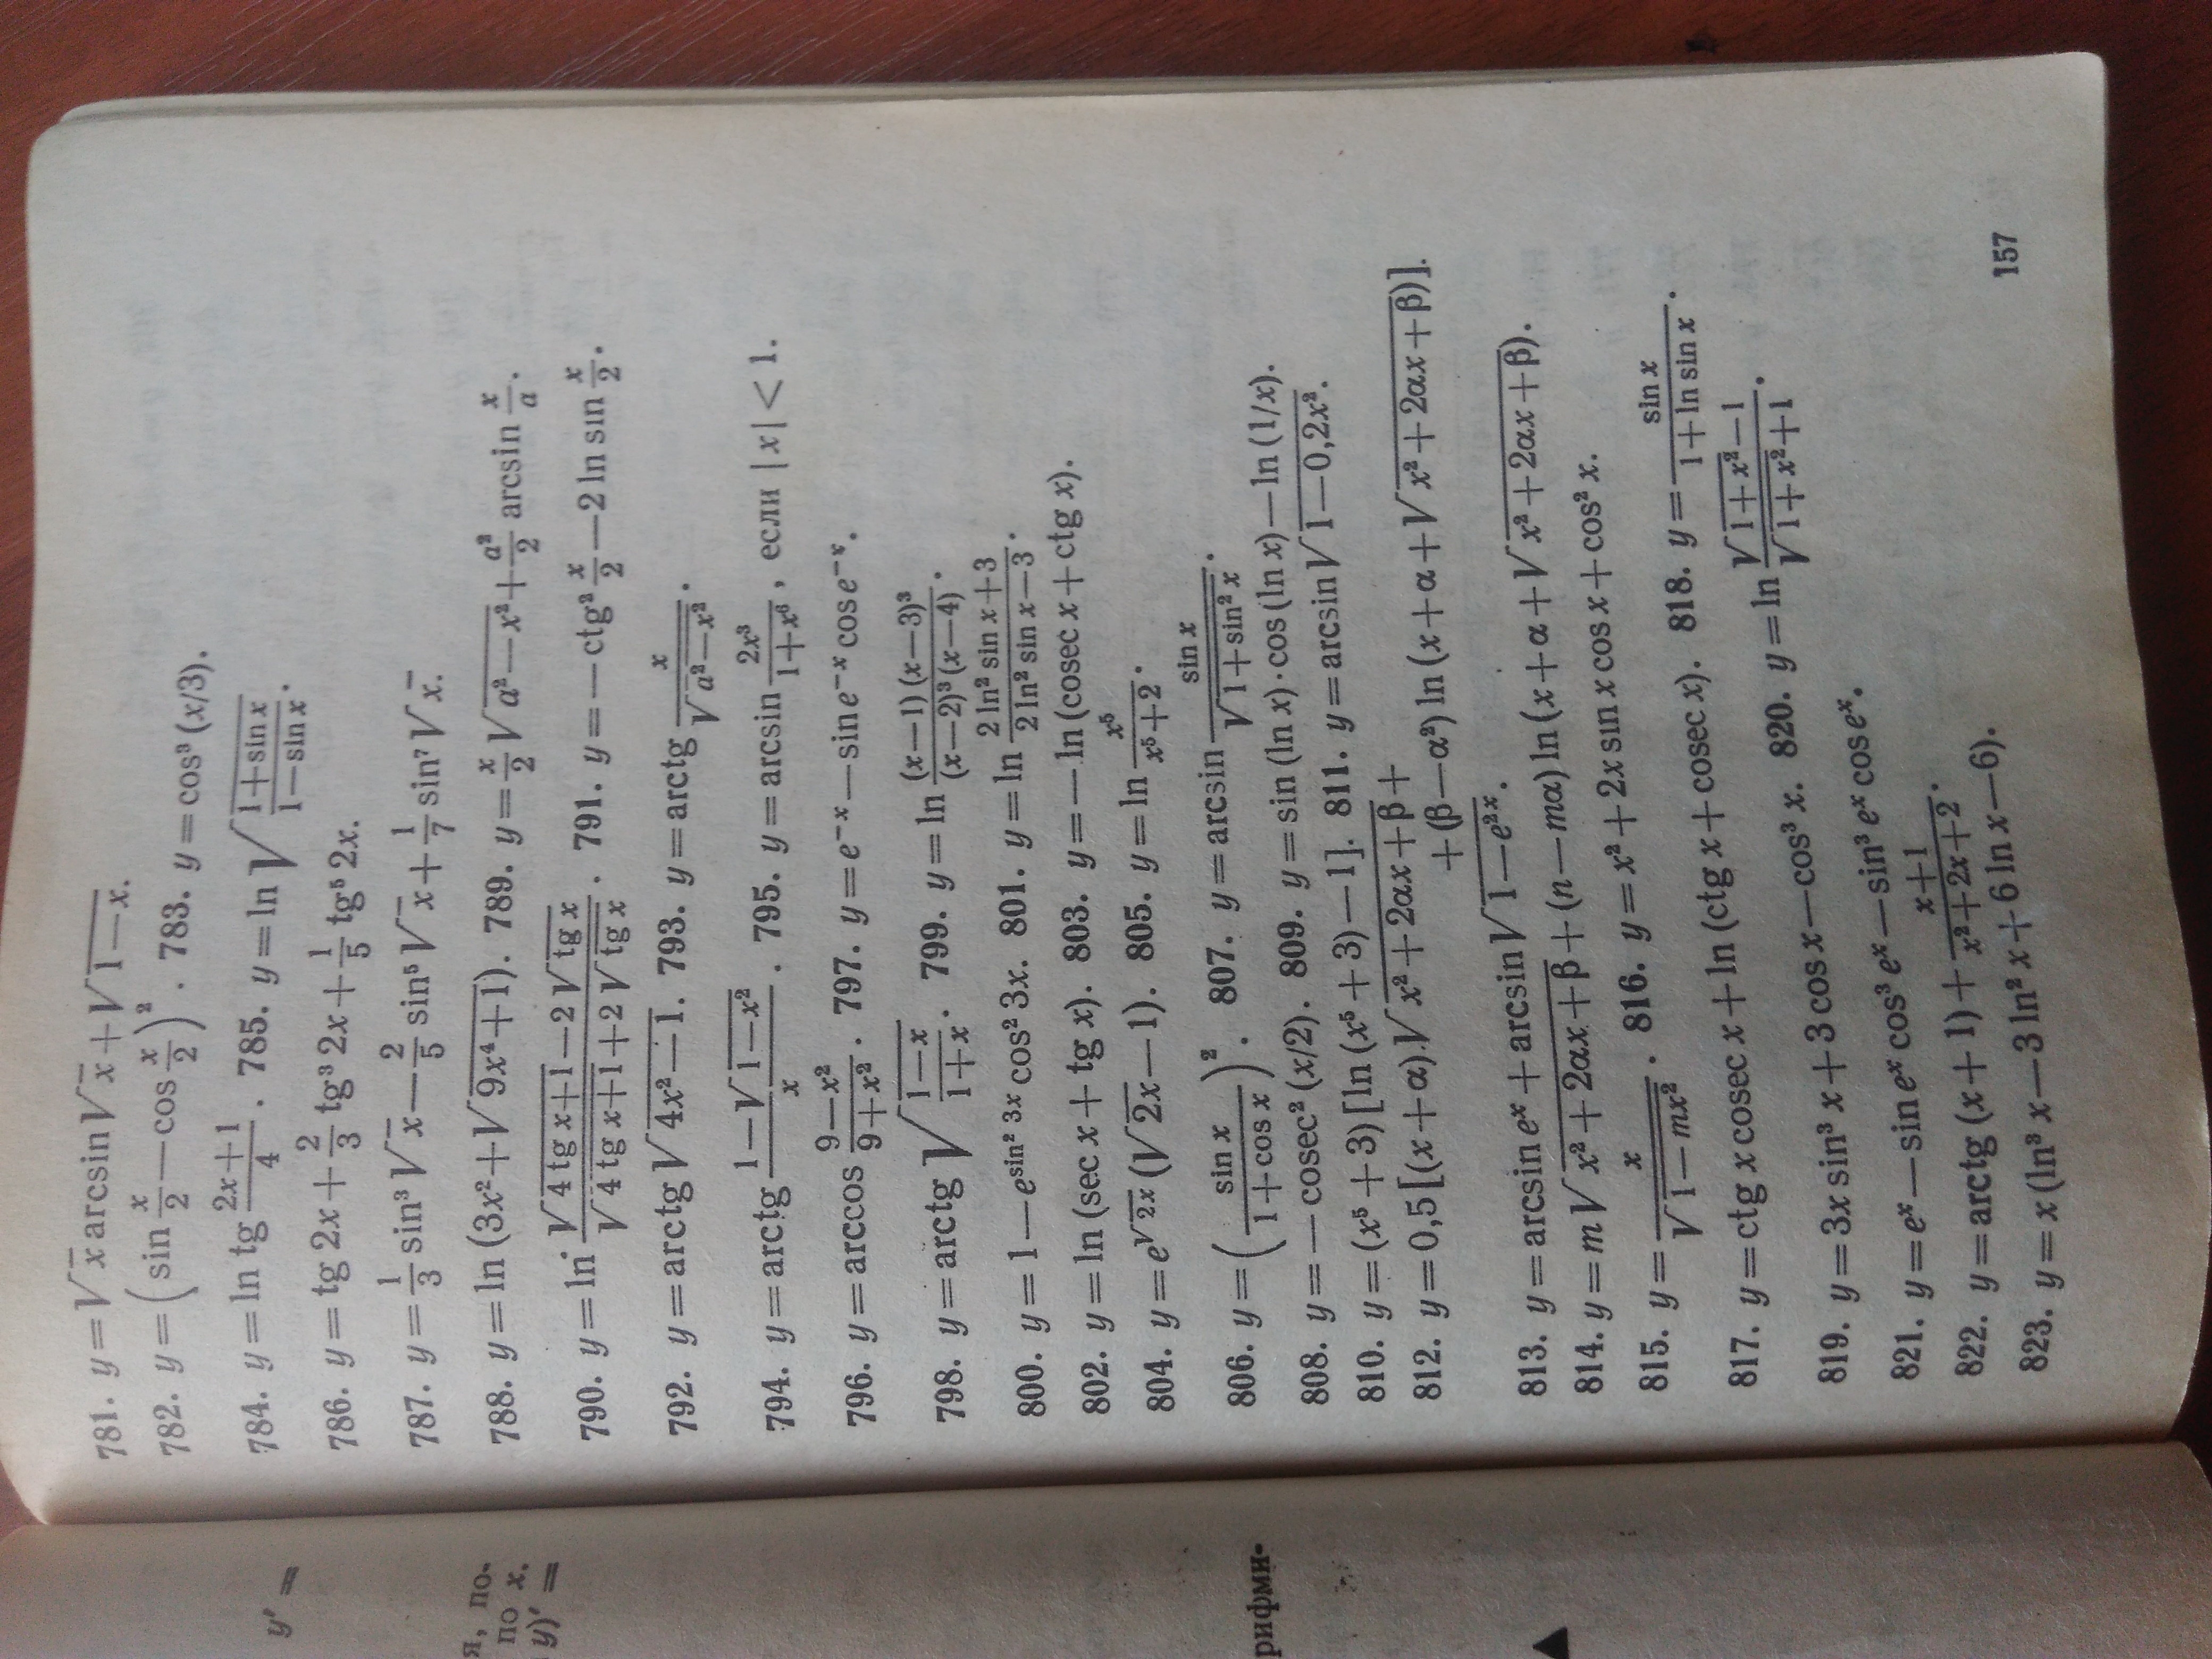 781. y = √x arcsin √x + √(1−x).
782. y = (sin x/2 − cos x/2)². 783. y = cos³ (x/3).
784. y = ln tg (2x+1)/4. 785. y = ln √((1+sin x)/(1−sin x)).
786. y = tg 2x + 2/3 tg³ 2x + 1/5 tg⁵ 2x.
787. y = 1/3 sin³ √x − 2/5 sin⁵ √x + 1/7 sin⁷ √x.
788. y = ln (3x² + √(9x⁴+1)). 789. y = x/2 √(a²−x²) + a²/2 arcsin x/a.
790. y = ln (√(4 tg x+1) − 2√(tg x))/(√(4 tg x+1) + 2√(tg x)). 791. y = −ctg² x/2 − 2 ln sin x/2.
792. y = arctg √(4x²−1). 793. y = arctg x/√(a²−x²).
794. y = arctg (1−√(1−x²))/x. 795. y = arcsin 2x³/(1+x⁶), если |x| < 1.
796. y = arccos (9−x²)/(9+x²). 797. y = e⁻ˣ − sin e⁻ˣ cos e⁻ˣ.
798. y = arctg √((1−x)/(1+x)). 799. y = ln ((x−1)(x−3)³)/((x−2)³(x−4)).
800. y = 1 − e^(sin² 3x) cos² 3x. 801. y = ln (2 ln² sin x+3)/(2 ln² sin x−3).
802. y = ln (sec x + tg x). 803. y = −ln (cosec x + ctg x).
804. y = e^(√(2x)) (√(2x) − 1). 805. y = ln x⁵/(x⁵+2).
806. y = (sin x/(1+cos x))². 807. y = arcsin sin x/√(1+sin² x).
808. y = −cosec² (x/2). 809. y = sin (ln x)·cos (ln x) − ln (1/x).
810. y = (x⁵+3) [ln (x⁵+3) − 1]. 811. y = arcsin √(1−0,2x²).
812. y = 0,5 [(x+α) √(x²+2αx+β) +
+ (β−α²) ln (x+α+√(x²+2αx+β))].
813. y = arcsin eˣ + arcsin √(1−e²ˣ).
814. y = m √(x²+2αx+β) + (n−mα) ln (x+α+√(x²+2αx+β)).
815. y = x/√(1−mx²). 816. y = x² + 2x sin x cos x + cos² x.
817. y = ctg x cosec x + ln (ctg x + cosec x). 818. y = sin x/(1+ln sin x).
819. y = 3x sin³ x + 3 cos x − cos³ x. 820. y = ln (√(1+x²)−1)/(√(1+x²)+1).
821. y = eˣ − sin eˣ cos³ eˣ − sin³ eˣ cos eˣ.
822. y = arctg (x+1) + (x+1)/(x²+2x+2).
823. y = x (ln³ x − 3 ln² x + 6 ln x − 6).
157
y′ =
я, по-
по x.
y)′ =
рифми-
▲